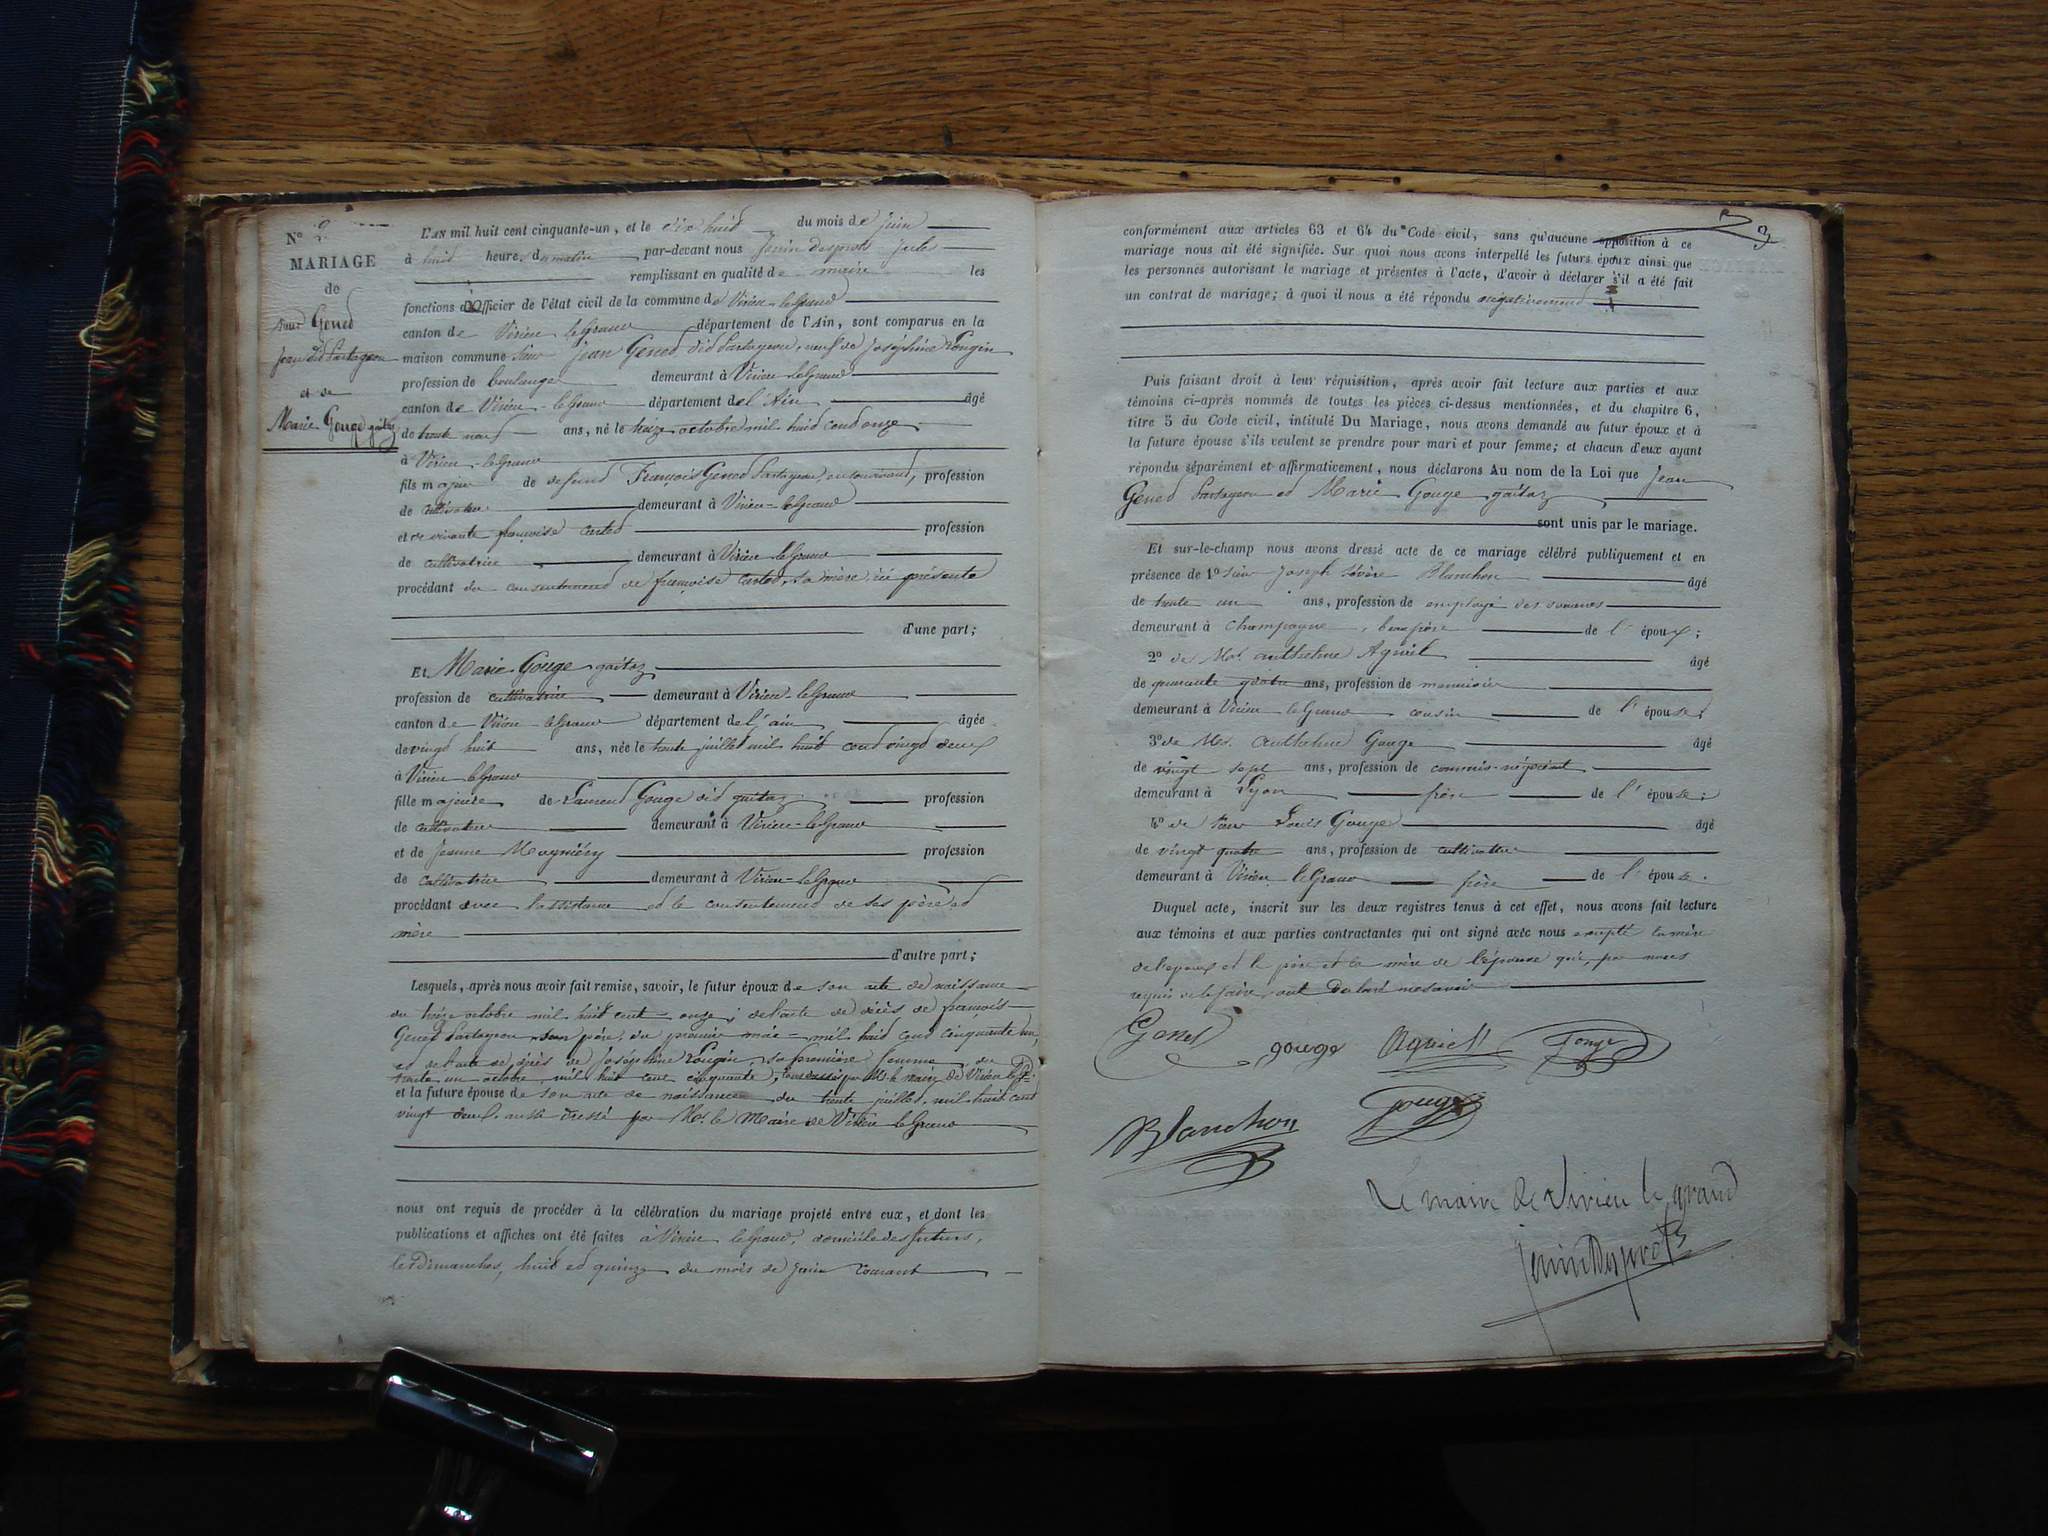 N° 9
MARIAGE
de
sieur Genet
jean dit Partageon
et de
Marie Gouge gaitaz
L'AN mil huit cent cinquante-un, et le dix huit du mois de juin
à huit heures du matin par-devant nous Jenin desprots jules
remplissant en qualité de maire les
fonctions d'officier de l'état civil de la commune de Virieu-le Grand
canton de Virieu le Grand département de l'Ain, sont comparus en la
maison commune sieur jean Genet dit Partageon, veuf de joséphine
profession de boulanger demeurant à Virieu le Grand
canton de Virieu-le Grand département de l'Ain âgé
de trente neuf ans, né le treize octobre mil huit cent onze
à Virieu-le Grand
fils majeur de defunt François Genet Partageon, profession
de cultivateur demeurant à Virieu-le Grand
et de vivante françoise Cartet profession
de cultivatrice demeurant à Virieu le Grand
procédant du consentement de françoise Cartet, sa mère ici présente
d'une part;
Et Marie Gouge gaitaz
profession de cultivatrice demeurant à Virieu-le Grand
canton de Virieu-le Grand département de l'ain âgée
de vingt huit ans, née le trente juillet mil huit cent vingt deux
à Virieu le Grand
fille majeure de Laurent Gouge dit gaitaz profession
de cultivateur demeurant à Virieu-le Grand
et de jeanne Mugniéry profession
de cultivatrice demeurant à Virieu-le Grand
procédant avec l'assistance et le consentement de ses père et
mère
d'autre part;
Lesquels, après nous avoir fait remise, savoir, le futur époux de son acte de naissance
du treize octobre mil huit cent onze; de l'acte de décès de françois
Genet Partageon son père, du premier mai mil huit cent cinquante un,
et de l'acte de décès de joséphine sa première femme du
trente un octobre mil huit cent cinquante, tous par Mr. le maire de Virieu le Gd.
et la future épouse de son acte de naissance du trente juillet, mil huit cent
vingt deux, aussi dressé par Mr. le Maire de Virieu le Grand
nous ont requis de procéder à la célébration du mariage projeté entre eux, et dont les
publications et affiches ont été faites à Virieu le Grand, domicile des futurs,
les Dimanches, huit et quinze du mois de juin courant
conformément aux articles 63 et 64 du Code civil, sans qu'aucune opposition à ce
mariage nous ait été signifiée. Sur quoi nous avons interpellé les futurs époux ainsi que
les personnes autorisant le mariage et présentes à l'acte, d'avoir à déclarer s'il a été fait
un contrat de mariage; à quoi il nous a été répondu négativement
Puis faisant droit à leur réquisition, après avoir fait lecture aux parties et aux
témoins ci-après nommés de toutes les pièces ci-dessus mentionnées, et du chapitre 6,
titre 5 du Code civil, intitulé Du Mariage, nous avons demandé au futur époux et à
la future épouse s'ils veulent se prendre pour mari et pour femme; et chacun d'eux ayant
répondu séparément et affirmativement, nous déclarons Au nom de la Loi que Jean
Genet Partageon et Marie Gouge gaitaz
sont unis par le mariage.
Et sur-le-champ nous avons dressé acte de ce mariage célébré publiquement et en
présence de 1° sieur Joseph Sévère Blanchon âgé
de trente un ans, profession de employé des douanes
demeurant à Champagne, beau frère de l'époux;
2° de Mr. anthelme Agniel âgé
de quarante quatre ans, profession de menuisier
demeurant à Virieu le Grand cousin de l'épouse;
3° de Mr. anthelme Gouge âgé
de vingt sept ans, profession de commis-négociant
demeurant à Lyon frère de l'épouse;
4° de sieur Louis Gouge âgé
de vingt quatre ans, profession de cultivateur
demeurant à Virieu le Grand frère de l'épouse.
Duquel acte, inscrit sur les deux registres tenus à cet effet, nous avons fait lecture
aux témoins et aux parties contractantes qui ont signé avec nous excepté la mère
de l'epoux et le père et la mère de l'épouse qui, par nous
requis de le faire, ont Déclaré ne savoir
Genet gouge Agniel Gouge
Blanchon Gouge
Le maire de Virieu le grand
Jenin Desprots